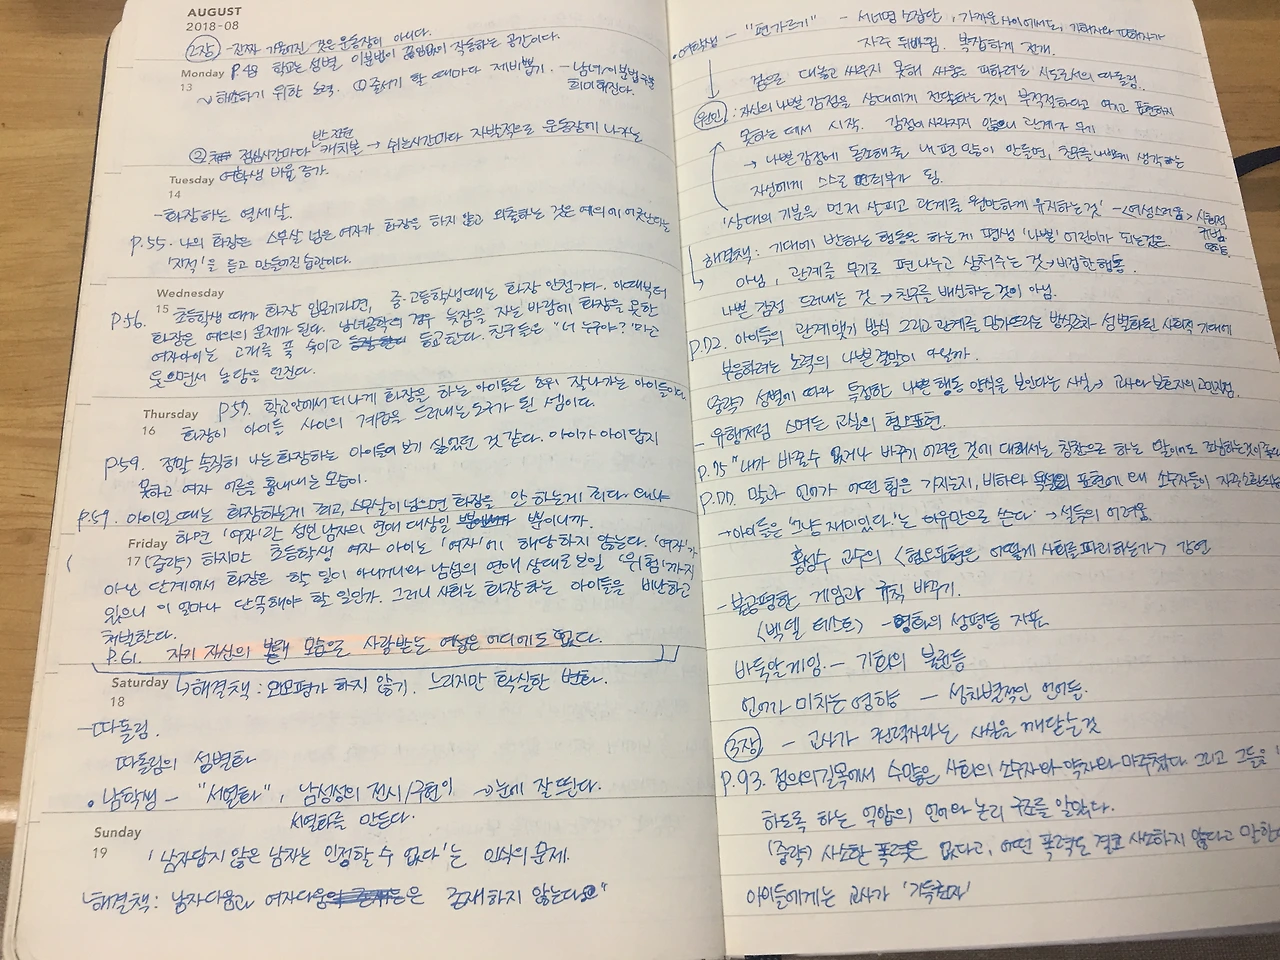 AUGUST
2018-08
2장 - 진짜 기울어진 것은 운동장이 아니다.
Monday
13
P.48 학교는 성별 이분법이 끊임없이 작동하는 공간이다.
↳ 해소하기 위한 노력. ① 줄서기 할 때마다 제비뽑기. - 남녀 이분법 구분
희미해진다.
반 전원
② 점심시간마다 캐치볼 → 쉬는시간마다 자발적으로 운동장에 나가는
Tuesday
14
여학생 비율 증가.
- 화장하는 열세살.
P.55. 나의 화장은 스무살 넘은 여자가 화장을 하지 않고 외출하는 것은 예의에 어긋난다는
'지적'을 듣고 만들어진 습관이다.
Wednesday
15
P.56. 초등학생 때가 화장 입문기라면, 중·고등학생때는 화장 안정기다. 이때부터
화장은 예의의 문제가 된다. 남녀공학의 경우 늦잠을 자는 바람에 화장을 못한
여자아이는 고개를 푹 숙이고 등교한다. 친구들은 "너 누구야?"라고
웃으면서 농담을 던진다.
Thursday
16
P.57. 학교안에서 더 나게 화장을 하는 아이들은 소위 잘나가는 아이들이다.
화장이 아이들 사이의 계급을 드러내는 도구가 된 셈이다.
P.59. 정말 솔직히 나는 화장하는 아이들이 보기 싫었던 것 같다. 아이가 아이답지
못하고 여자 어른을 흉내내는 모습이.
P.59. 아이일 때는 화장하는게 죄고, 스무살이 넘으면 화장을 안 하는게 죄다. 왜냐
하면 '여자'란 성인 남자의 연애 대상일 뿐이니까.
Friday
17
(중략) 하지만 초등학생 여자 아이는 '여자'에 해당하지 않는다. '여자'가
아닌 단계에서 화장은 할 일이 아니거니와 남성의 연애 상대로 보일 '위험'까지
있으니 이 얼마나 단속해야 할 일인가. 그러니 사회는 화장하는 아이들을 비난하고
처벌한다.
P.61. 자기 자신의 본래 모습으로 사랑받는 여성은 어디에도 없다.
Saturday
18
↳ 해결책 : 외모평가 하지 않기. 느리지만 확실한 변화.
- 따돌림.
따돌림의 성별화
• 남학생 - "서열화", 남성성의 전시/구현이 → 눈에 잘 띈다.
서열화를 만든다.
Sunday
19
'남자답지 않은 남자는 인정할 수 없다'는 인식의 문제.
↳ 해결책 : 남자다움과 여자다움은 존재하지 않는다."
• 여학생 - "편가르기" - 서너명 소집단, 가까운 사이에서도, 가해자와 피해자가
자주 뒤바뀜. 복잡하게 전개.
겉으로 대놓고 싸우지 못해 싸움을 피하려는 시도로서의 따돌림.
원인 : 자신의 나쁜 감정을 상대에게 전달하는 것이 부적절하다고 여기고 표현하지
못하는 데서 시작. 감정이 사라지지 않으니 관계가 무기
→ 나쁜 감정에 동조해줄 내 편 만들면, 친구를 나쁘게 생각하는
자신에게 스스로 면죄부가 됨.
'상대의 기분을 먼저 살피고 관계를 원만하게 유지하는 것' - <여성스러움> 사회적
규범,
압박,
해결책 : 기대에 반하는 행동을 하는게 평생 '나쁜' 어린이가 되는것은
아님, 관계를 무기로 편 나누고 상처주는 것 → 비겁한 행동.
나쁜 감정 드러내는 것 → 친구를 배신하는 것이 아님.
P.72. 아이들의 관계맺기 방식 그리고 관계를 망가뜨리는 방식조차 성별화된 사회적 기대에
부응하려는 노력의 나쁜 결말이 아닐까.
(중략) 성별에 따라 특정한 나쁜 행동 양식을 보인다는 사실 → 교사와 보호자의 고민지점.
- 유행처럼 스며든 교실의 혐오표현.
P.75 "내가 바꿀수 없거나 바꾸기 어려운 것에 대해서는 칭찬으로 하는 말이어도 조심하는것이 좋다
P.77. 말과 언어가 어떤 힘을 가지는지, 비하와 욕설의 표현에 왜 소수자들이 자주 소환되는
→ 아이들은 '그냥 재미있다.'는 이유만으로 쓴다 → 설득의 어려움.
홍성수 교수의 <혐오표현은 어떻게 사회를 파괴하는가> 강연
- 불공평한 게임과 규칙 바꾸기.
<벡델 테스트> - 영화의 성평등 지표.
바둑알게임. - 기회의 불균등
언어가 미치는 영향 - 성차별적인 언어들.
3장 - 교사가 권력자라는 사실을 깨닫는 것
P.93. 정의의 길목에서 수많은 사회의 소수자와 약자와 마주쳤다 그리고 그들을
하도록 하는 억압의 언어와 논리 구조를 알았다.
(중략) 사소한 폭력은 없다고, 어떤 폭력도 결코 사소하지 않다고 말한
아이들에게는 교사가 '기득권자'